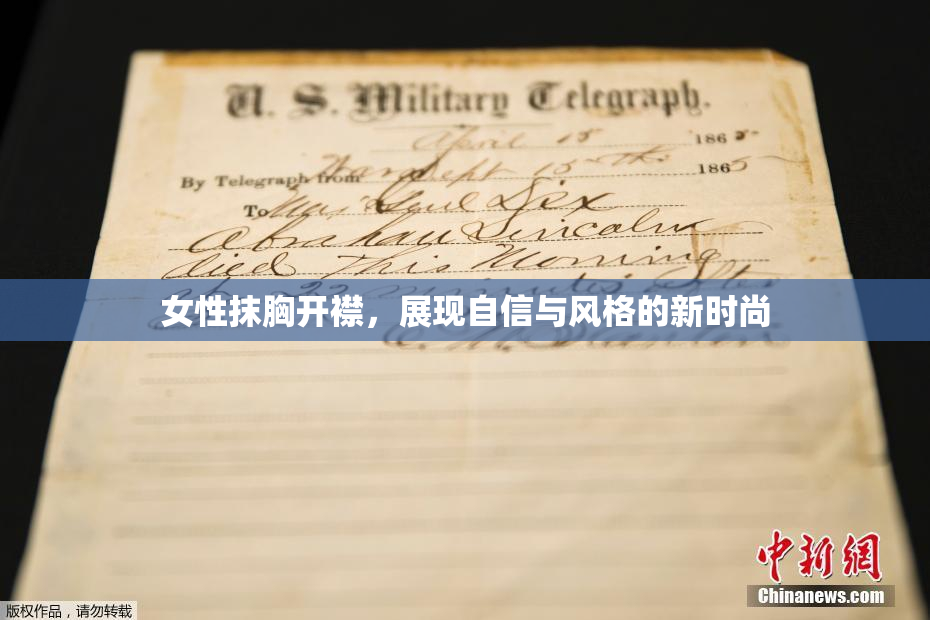 U. S. Military Telegraph.
April 15 1865
By Telegraph from War Dept 15th 1865
To Maj Genl Dix
Abraham Lincoln
died This Morning
at 22 minutes after
女性抹胸开襟，展现自信与风格的新时尚
E. M. Stanton
中新网
Chinanews.com
版权作品，请勿转载